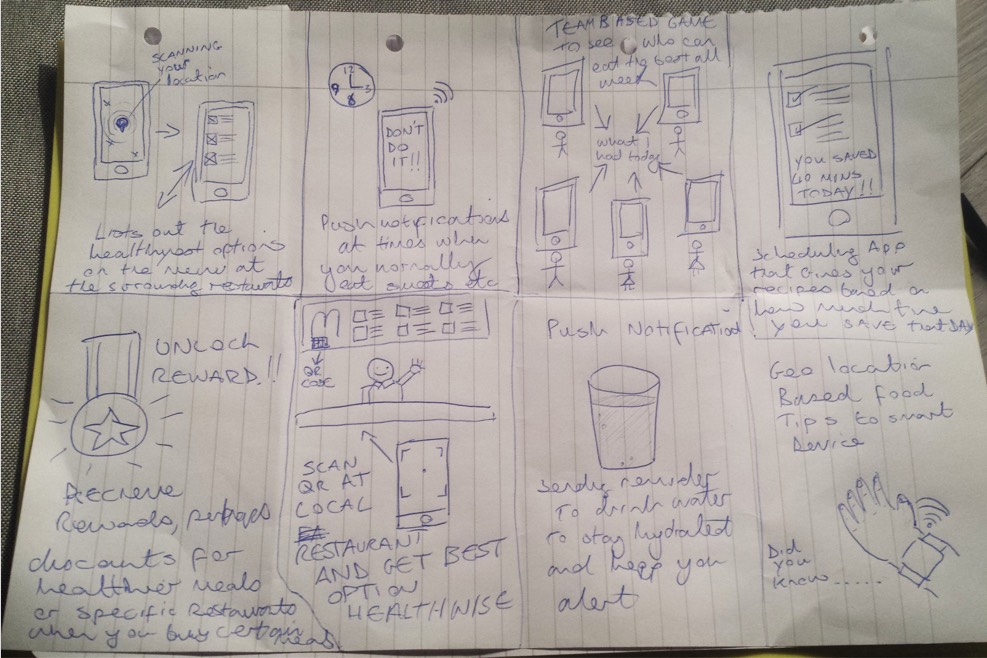 SCANNING
your
location
Lists out the
healthyest options
on the menu at
the surrounding restaurants
12
9
3
6
DON'T
DO
IT!!
Push notifications
at times when
you normally
eat sweets etc
TEAM BASED GAME
To see who can
eat the best all
week
what I
had today
YOU SAVED
40 MINS
TODAY!!
Scheduling App
that gives your
recipes based on
how much time
you SAVE that DAY
UNLOCK
REWARD!!
Recieve
Rewards, perhaps
discounts for
healthier meals
or specific Restaurants
when you buy certain
meals
M
QR
CODE
SCAN
QR AT
LOCAL
RESTAURANT
AND GET BEST
OPTION
HEALTHWISE
Push Notification
Sends reminder
To drink water
To stay hydrated
and keep you
alert
Geo location
Based food
Tips to smart
Device
Did
you
know......